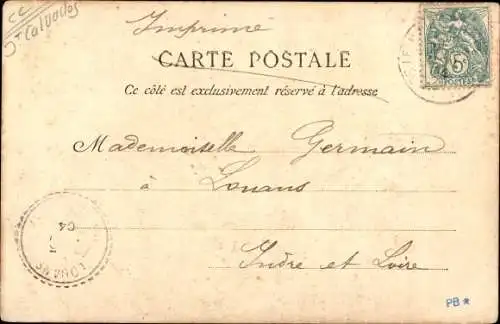 CC
J - Calvados
Imprimé
CARTE POSTALE
Ce côté est exclusivement réservé à l'adresse
5
POSTES
Mademoiselle Germain
à
Louans
Indre et Loire
04
LOUANS
PB*